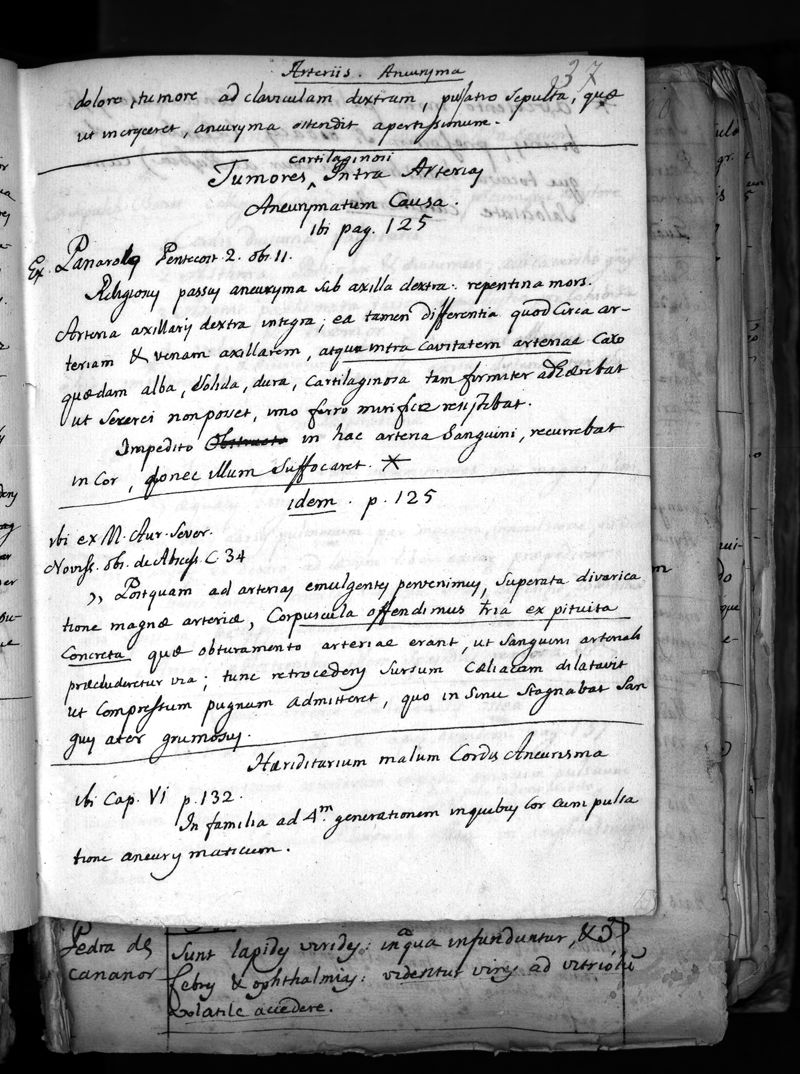 Arteriis. Aneuryma
37
dolore, tumore ad claviculam dextram, pulsatio sepulta, quæ
ut incresceret, aneuryma ostendit apertissimum.
cartilaginosi
Tumores ^ Intra Arterias
Aneurymatum Causa.
ibi pag. 125
Ex. Panarolo Pentecost. 2. obs. 11.
Religiosus passus aneuryma sub axilla dextra: repentina mors.
Arteria axillaris dextra integra; ea tamen differentia quod circa ar-
teriam & venam axillarem, atque intra cavitatem arteriae Caro
quædam alba, Solida, dura, Cartilaginosa tam firmiter adhærebat
ut non posset, imo ferro mirifice resistebat.
Impedito Obstructo in hac arteria Sanguini, recurrebat
in Cor, donec illum Suffocaret. X
idem. p. 125
ibi ex M. Aur. Sever.
Noviss. obs. de Abscess. C. 34
,, Postquam ad arterias emulgentes pervenimus, Superata divarica
tione magnæ arteriæ, Corpuscula offendimus tria ex pituita
Concreta quæ obturamento arteriae erant, ut Sanguini arteriali
præcluderetur via; tunc retrocedens Sursum Cæliacam dilatavit
ut Compressum pugnum admitteret, quo in Sinu Stagnabat San
guis ater grumosus.
Hæriditarium malum Cordis Aneurisma
ibi Cap. VI p. 132.
In familia ad 4m. generationem inquebus Cor cum pulsa
tione aneurymaticum.
Pedra de
Cananor
Sunt lapides virides: in qua infunduntur,
febres & ophthalmias: videntur vires ad vitriolu
volatile accedere.